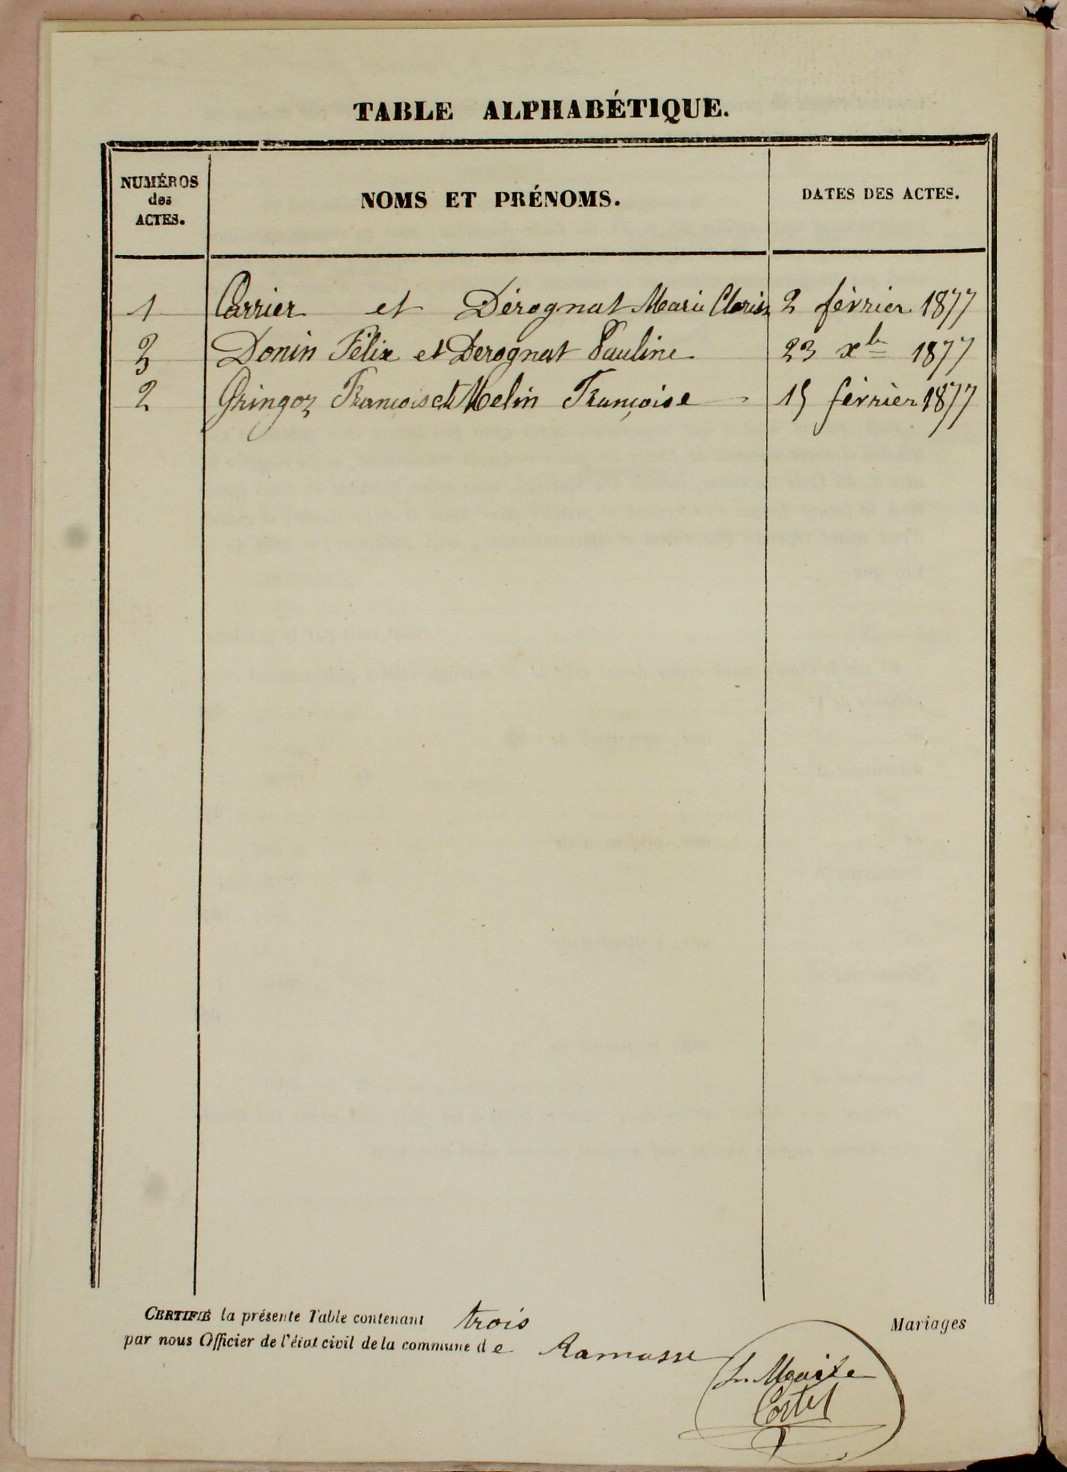 TABLE ALPHABÉTIQUE.
NUMÉROS des ACTES.
NOMS ET PRÉNOMS.
DATES DES ACTES.
1 Carrier et Dérognat Marie 2 février 1877
3 Donin Félix et Derognat Pauline 23 Xbre 1877
2 Gringoz François et Melin Françoise 15 février 1877
CERTIFIÉ la présente Table contenant trois Mariages
par nous Officier de l'état civil de la commune de Ramasse
Le Maire
Cortel